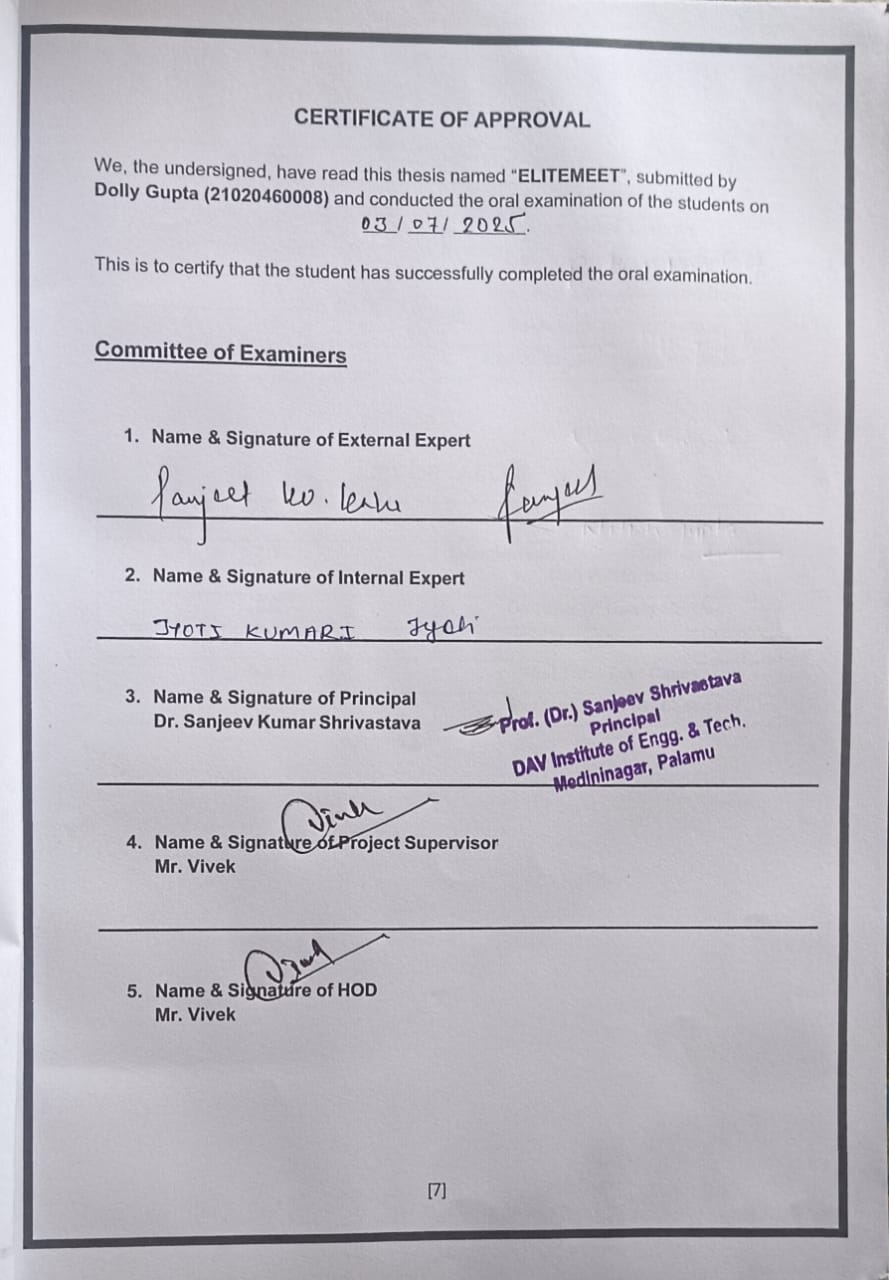 CERTIFICATE OF APPROVAL
We, the undersigned, have read this thesis named “ELITEMEET”, submitted by
Dolly Gupta (21020460008) and conducted the oral examination of the students on
03 / 07 / 2025.
This is to certify that the student has successfully completed the oral examination.
Committee of Examiners
1. Name & Signature of External Expert
2. Name & Signature of Internal Expert
JYOTI KUMARI Jyoti
3. Name & Signature of Principal
Dr. Sanjeev Kumar Shrivastava
Prof. (Dr.) Sanjeev Shrivastava
Principal
DAV Institute of Engg. & Tech.
Medininagar, Palamu
4. Name & Signature of Project Supervisor
Mr. Vivek
5. Name & Signature of HOD
Mr. Vivek
[7]